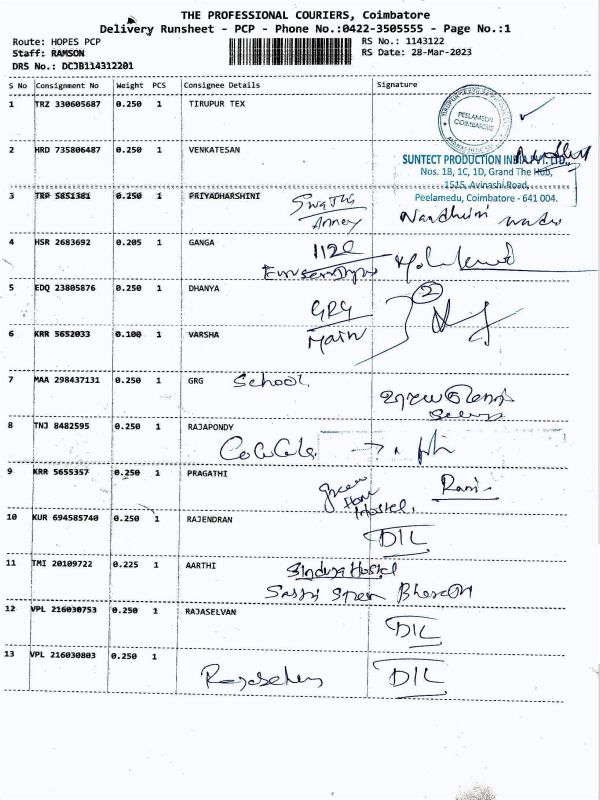 THE PROFESSIONAL COURIERS, Coimbatore
Delivery Runsheet - PCP - Phone No.:0422-3505555 - Page No.:1
Route: HOPES PCP
Staff: RAMSON
DRS No.: DCJB114312201
RS No.: 1143122
RS Date: 28-Mar-2023
S No Consignment No Weight PCS Consignee Details Signature
1 TRZ 330605687 0.250 1 TIRUPUR TEX
PEELAMEDU
COIMBATORE
2 HRD 735806487 0.250 1 VENKATESAN
SUNTECT PRODUCTION INDIA PVT. LTD.,
Nos. 1B, 1C, 1D, Grand The Hub,
1515, Avinashi Road,
Peelamedu, Coimbatore - 641 004.
3 TRP 5851381 0.250 1 PRIYADHARSHINI
Swathi
Annex
Nandhini
4 HSR 2683692 0.205 1 GANGA
1120
5 EDQ 23805876 0.250 1 DHANYA
GRG
Main
2
6 KRR 5652033 0.100 1 VARSHA
7 MAA 298437131 0.250 1 GRG School
8 TNJ 8482595 0.250 1 RAJAPONDY
9 KRR 5655357 0.250 1 PRAGATHI
green
Home
Hostel
Rani
10 KUR 694585740 0.250 1 RAJENDRAN
D/L
11 TMI 20109722 0.225 1 AARTHI
Sinduja Hostel
Bharath
12 VPL 216030753 0.250 1 RAJASELVAN
D/L
13 VPL 216030803 0.250 1
D/L